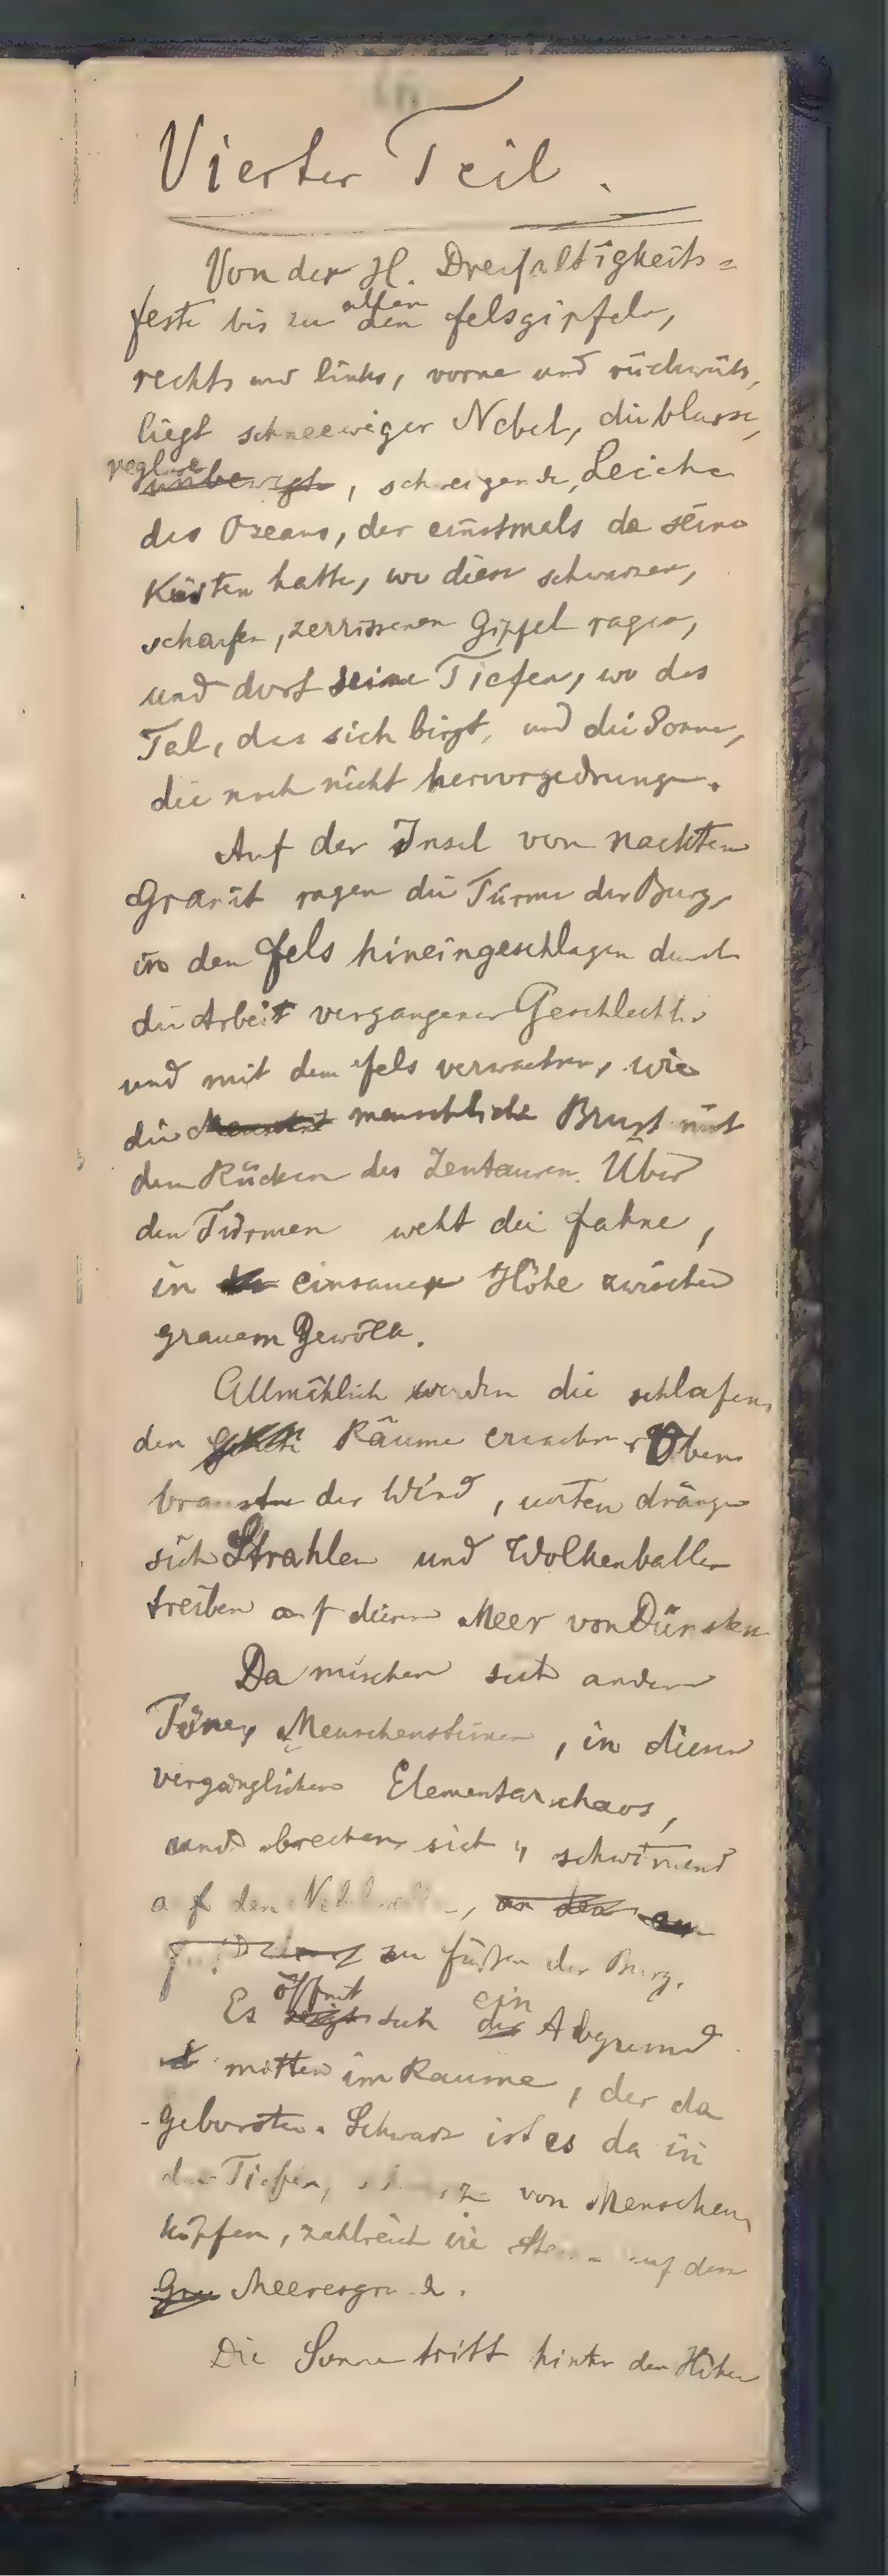 Vierter Teil.
Von der H. Dreifaltigkeits=
feste bis zu allen den Felsgipfeln,
rechts und links, vorne und rückwärts,
liegt schneeweiger Nebel, die blasse,
reglose unbewegte, schweigende, Leiche
des Ozeans, der einstmals da seine
Küsten hatte, wo diese schwarzen,
scharfen, zerrissenen Gipfel ragen,
und dort seine Tiefen, wo das
Tal, das sich birgt, und die Sonne,
die noch nicht hervorgedrungen.
Auf der Insel von nacktem
Granit ragen die Türme der Burg,
in den Fels hineingeschlagen durch
die Arbeit vergangener Geschlechter
und mit dem Fels verwachsen, wie
die menschliche Brust mit
dem Rücken des Zentauren. Über
den Türmen weht die Fahne,
in einsamer Höhe zwischen
grauem Gewölk.
Allmählich werden die schlafen,
den Räume erwachen. Oben
brauste der Wind, unten drängen
sich Strahlen und Wolkenballen
treiben auf diesem Meer von Dünsten
Da mischen sich andere
Töne, Menschenstimmen, in dieses
vergängliche Elementarchaos,
und brechen sich, schwimmend
auf den, an den
zu Füßen der Burg.
Es öffnet zeigt sich ein der Abgrund
mitten im Raume, der da
geborsten. Schwarz ist es da in
den Tiefen, schwarz von Menschen,
köpfen, zahlreich wie auf dem
Gru Meeresgrunde.
Die Sonne tritt hinter den Höhen